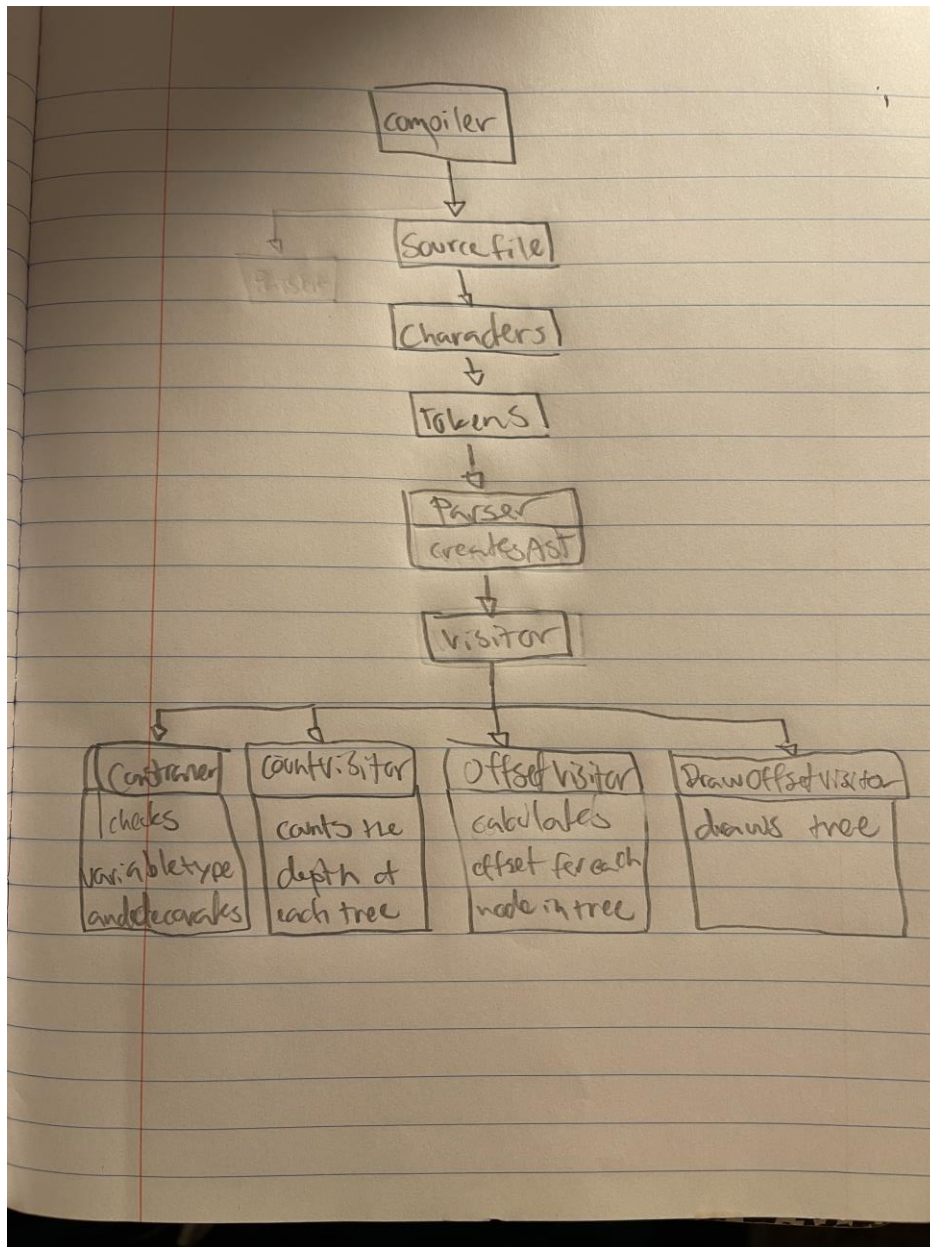 compiler
Sourcefile
Characters
Tokens
Parser
createsAST
Visitor
Contrainer
checks
variabletype
anddecorates
countVisitor
counts the
depth of
each tree
OffsetVisitor
calculates
offset for each
node in tree
DrawOffsetVisitor
draws tree